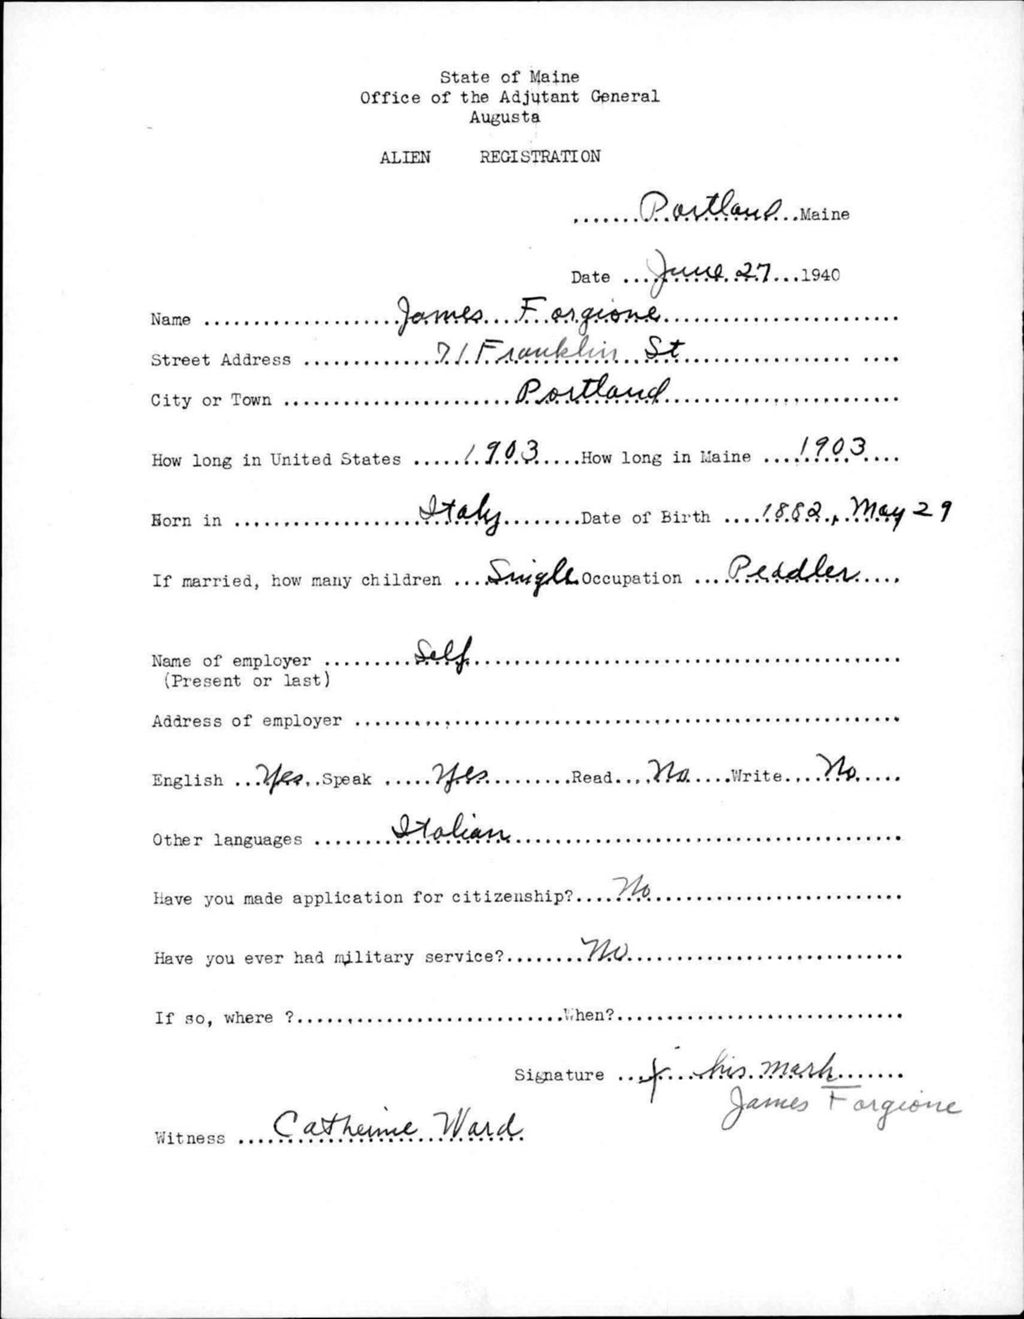 State of Maine
Office of the Adjutant General
Augusta
ALIEN REGISTRATION
.......Portland..Maine
Date ...June 27...1940
Name ....................James Forgione........................
Street Address .............71 Franklin St................. ....
City or Town .......................Portland.......................
How long in United States .....1903.....How long in Maine ....1903....
Born in ...................Italy........Date of Birth ....1882, May 29
If married, how many children ...Single Occupation ...Peddler....
Name of employer .........Self...........................................
(Present or last)
Address of employer ......................................................
English ...Yes..Speak .....Yes.........Read....No....Write....No.....
Other languages ........Italian.......................................
Have you made application for citizenship?....No.........................
Have you ever had military service?........No...........................
If so, where ?...........................When?.............................
Signature ...X...his mark.......
James Forgione
Witness ....Catherine Ward